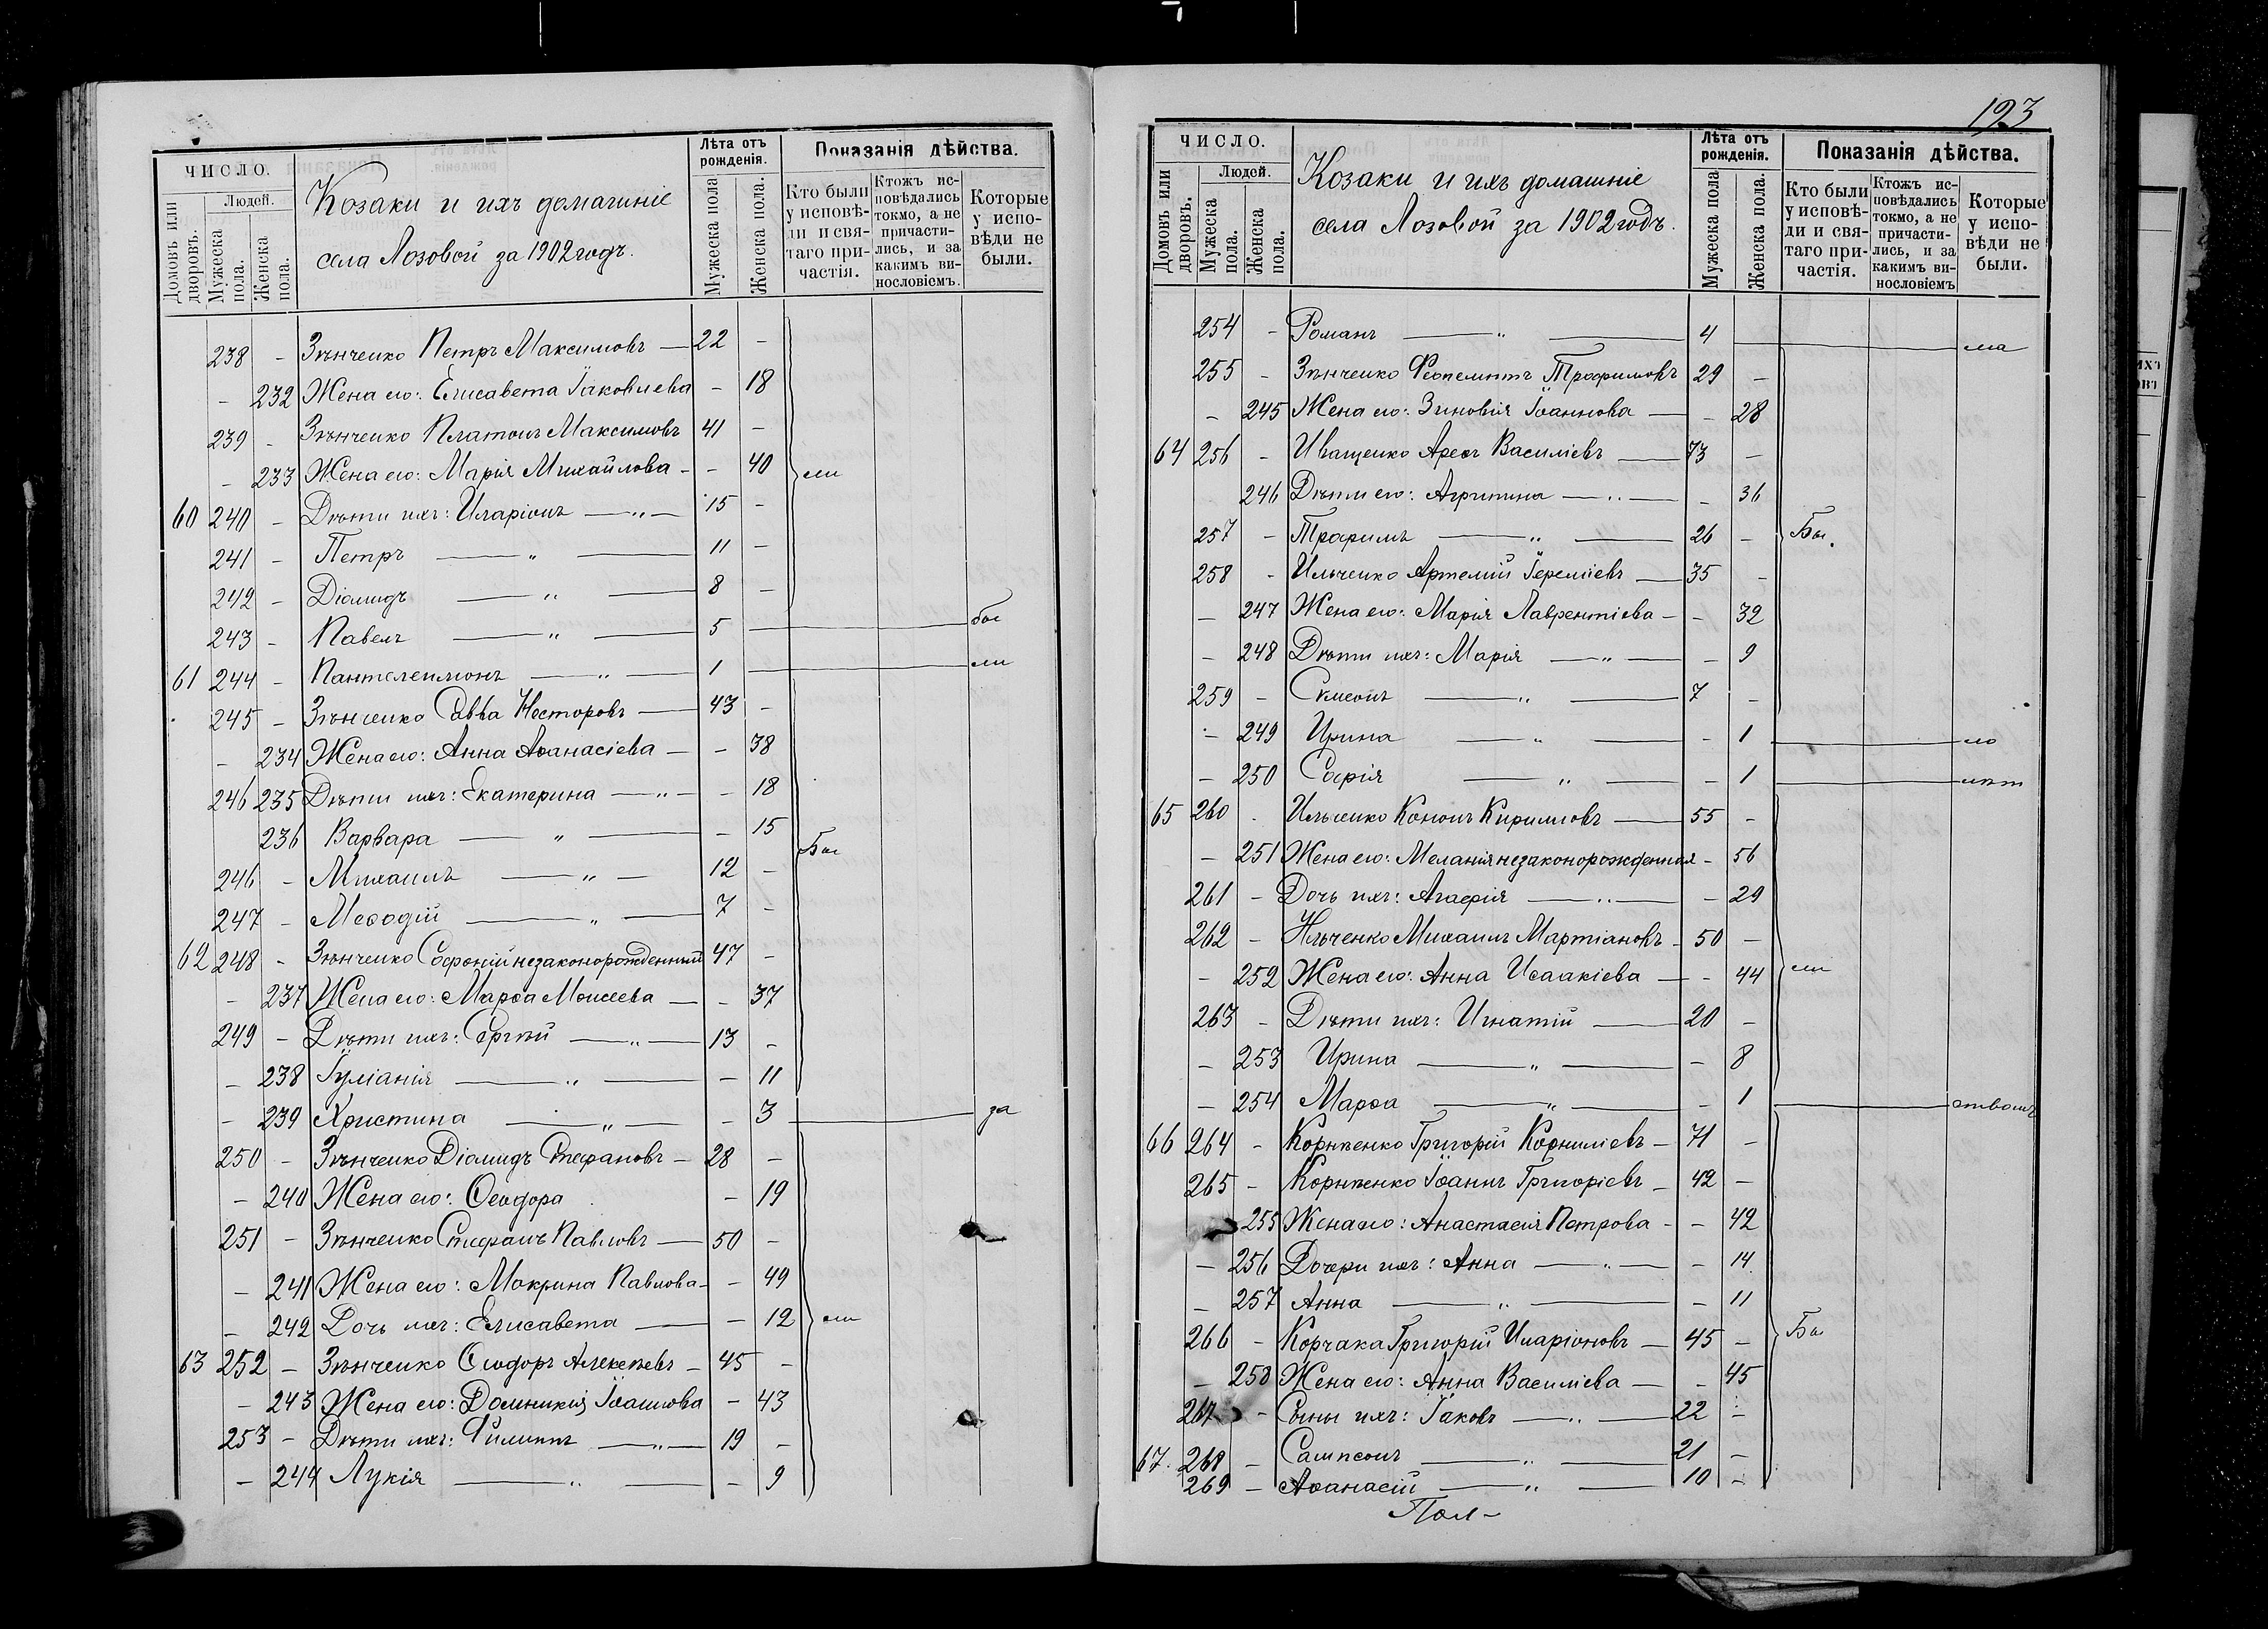 ЧИСЛО.
Людей.
Домовъ или дворовъ.
Мужеска пола.
Женска пола.
Козаки и ихъ домашніе
села Лозовой за 1902 годъ.
Лѣта отъ рожденія.
Мужеска пола
Женска пола.
Показанія дѣйства.
Кто были у исповѣди и святаго причастія.
Ктожъ исповѣдались токмо, а не причастились, и за какимъ винословіемъ.
Которые у исповѣди не были.
238 - Зѣнченко Петръ Максимовъ — 22 -
- 232 Жена его: Елисавета Іаковлева - 18
239 - Зѣнченко Платонъ Максимовъ 41 -
- 233 Жена его: Марія Михайлова - - 40 } ли
60 240 - Дѣти ихъ: Иларіонъ — „ — 15 -
241 - Петръ — „ — 11 -
242 - Діомидъ — „ — 8 -
243 - Павелъ — „ — 5 — бы
61 244 - Пантелеимонъ — „ — 1 — ли
245 - Зѣнченко Савва Несторовъ — 43 -
- 234 Жена его: Анна Аѳанасіева — - 38
246 235 Дѣти ихъ: Екатерина — „ — - 18
236 Варвара — „ — - 15 } Бы
246 - Михаилъ — „ — 12 -
247 - Меѳодій — „ — 7 -
62 248 - Зѣнченко Софоній незаконорожденный 47 -
- 237 Жена его: Марѳа Моисеева — - 37
249 - Дѣти ихъ: Сергій — „ — 13 -
- 238 Іуліанія — „ — - 11
- 239 Христина — „ — - 3 — да
250 - Зѣнченко Діомидъ Стефановъ - 28 -
- 240 Жена его: Ѳеодора - 19
251 - Зѣнченко Стефанъ Павловъ — 50 -
- 241 Жена его: Мокрина Павлова - - 49
- 242 Дочь ихъ: Елисавета — - 12 } ли
63 252 - Зѣнченко Ѳеодоръ Алексѣевъ - 45 -
- 243 Жена его: Домникія Іоаннова - 43
253 - Дѣти ихъ: Филиппъ — „ — 19 -
- 244 Лукія — „ — - 9
123
ЧИСЛО.
Людей.
Домовъ или дворовъ.
Мужеска пола.
Женска пола.
Козаки и ихъ домашніе
села Лозовой за 1902 годъ.
Лѣта отъ рожденія.
Мужеска пола
Женска пола.
Показанія дѣйства.
Кто были у исповѣди и святаго причастія.
Ктожъ исповѣдались токмо, а не причастились, и за какимъ винословіемъ
Которые у исповѣди не были.
254 - Романъ — „ — 4 — ма
255 - Зѣнченко Ѳеопемптъ Трофимовъ 29 -
- 245 Жена его: Зиновія Іоаннова — - 28
64 256 - Иващенко Аресъ Василіевъ — 73 -
246 Дѣти его: Агрипина — „ — - 36
257 - Трофимъ — „ — 26 - } Бы.
258 - Ильченко Артемій Іереміевъ — 35 -
- 247 Жена его: Марія Лаврентіева - - 32
- 248 Дѣти ихъ: Марія — „ — - 9
259 - Симеонъ — „ — 7 -
- 249 Ирина — „ — - 1 — ло
- 250 Софія — „ — - 1 — лѣт
65 260 - Ильченко Кононъ Кирилловъ — 55 -
- 251 Жена его: Меланія незаконорожденная - 56
261 - Дочь ихъ: Агафія — „ — - 29
262 - Ильченко Михаилъ Мартіановъ - 50 -
- 252 Жена его: Анна Исаакіева — - 44 } ли
263 - Дѣти ихъ: Игнатій — 20 -
- 253 Ирина — „ — - 8
- 254 Марѳа — „ — - 1 — ствомъ
66 264 - Корнѣенко Григорій Корниліевъ - 71 -
265 - Корнѣенко Іоаннъ Григоріевъ - 42 -
255 Жена его: Анастасія Петрова - - 42
- 256 Дочери ихъ: Анна — „ — - 14
- 257 Анна — „ — - 11
266 - Корчака Григорій Иларіоновъ - 45 - } Бы
- 258 Жена его: Анна Василіева — - 45
267 - Сыны ихъ: Іаковъ — „ — 22 -
67. 268 - Сампсонъ — „ — 21 -
269 - Аѳанасій — „ — 10 -
Пол-